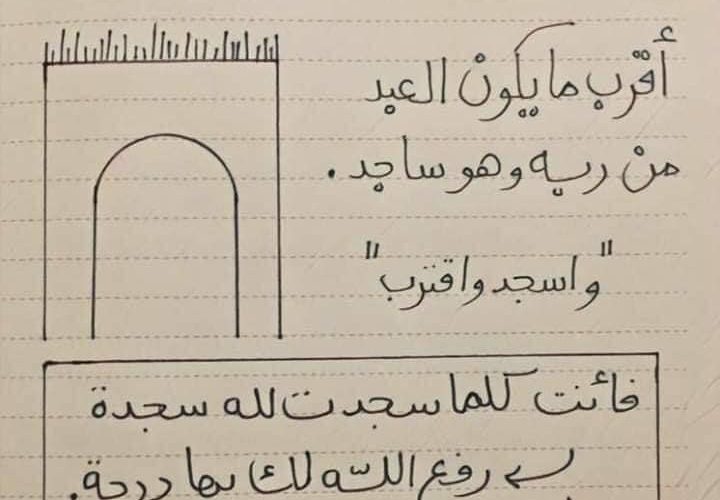 أقْرب ما يكونْ العبد
منْ ربه وهو ساجد .
"واسجد واقترب"
فأنت كلما سجدت لله سجدة
رفع الله لك بها درجة.